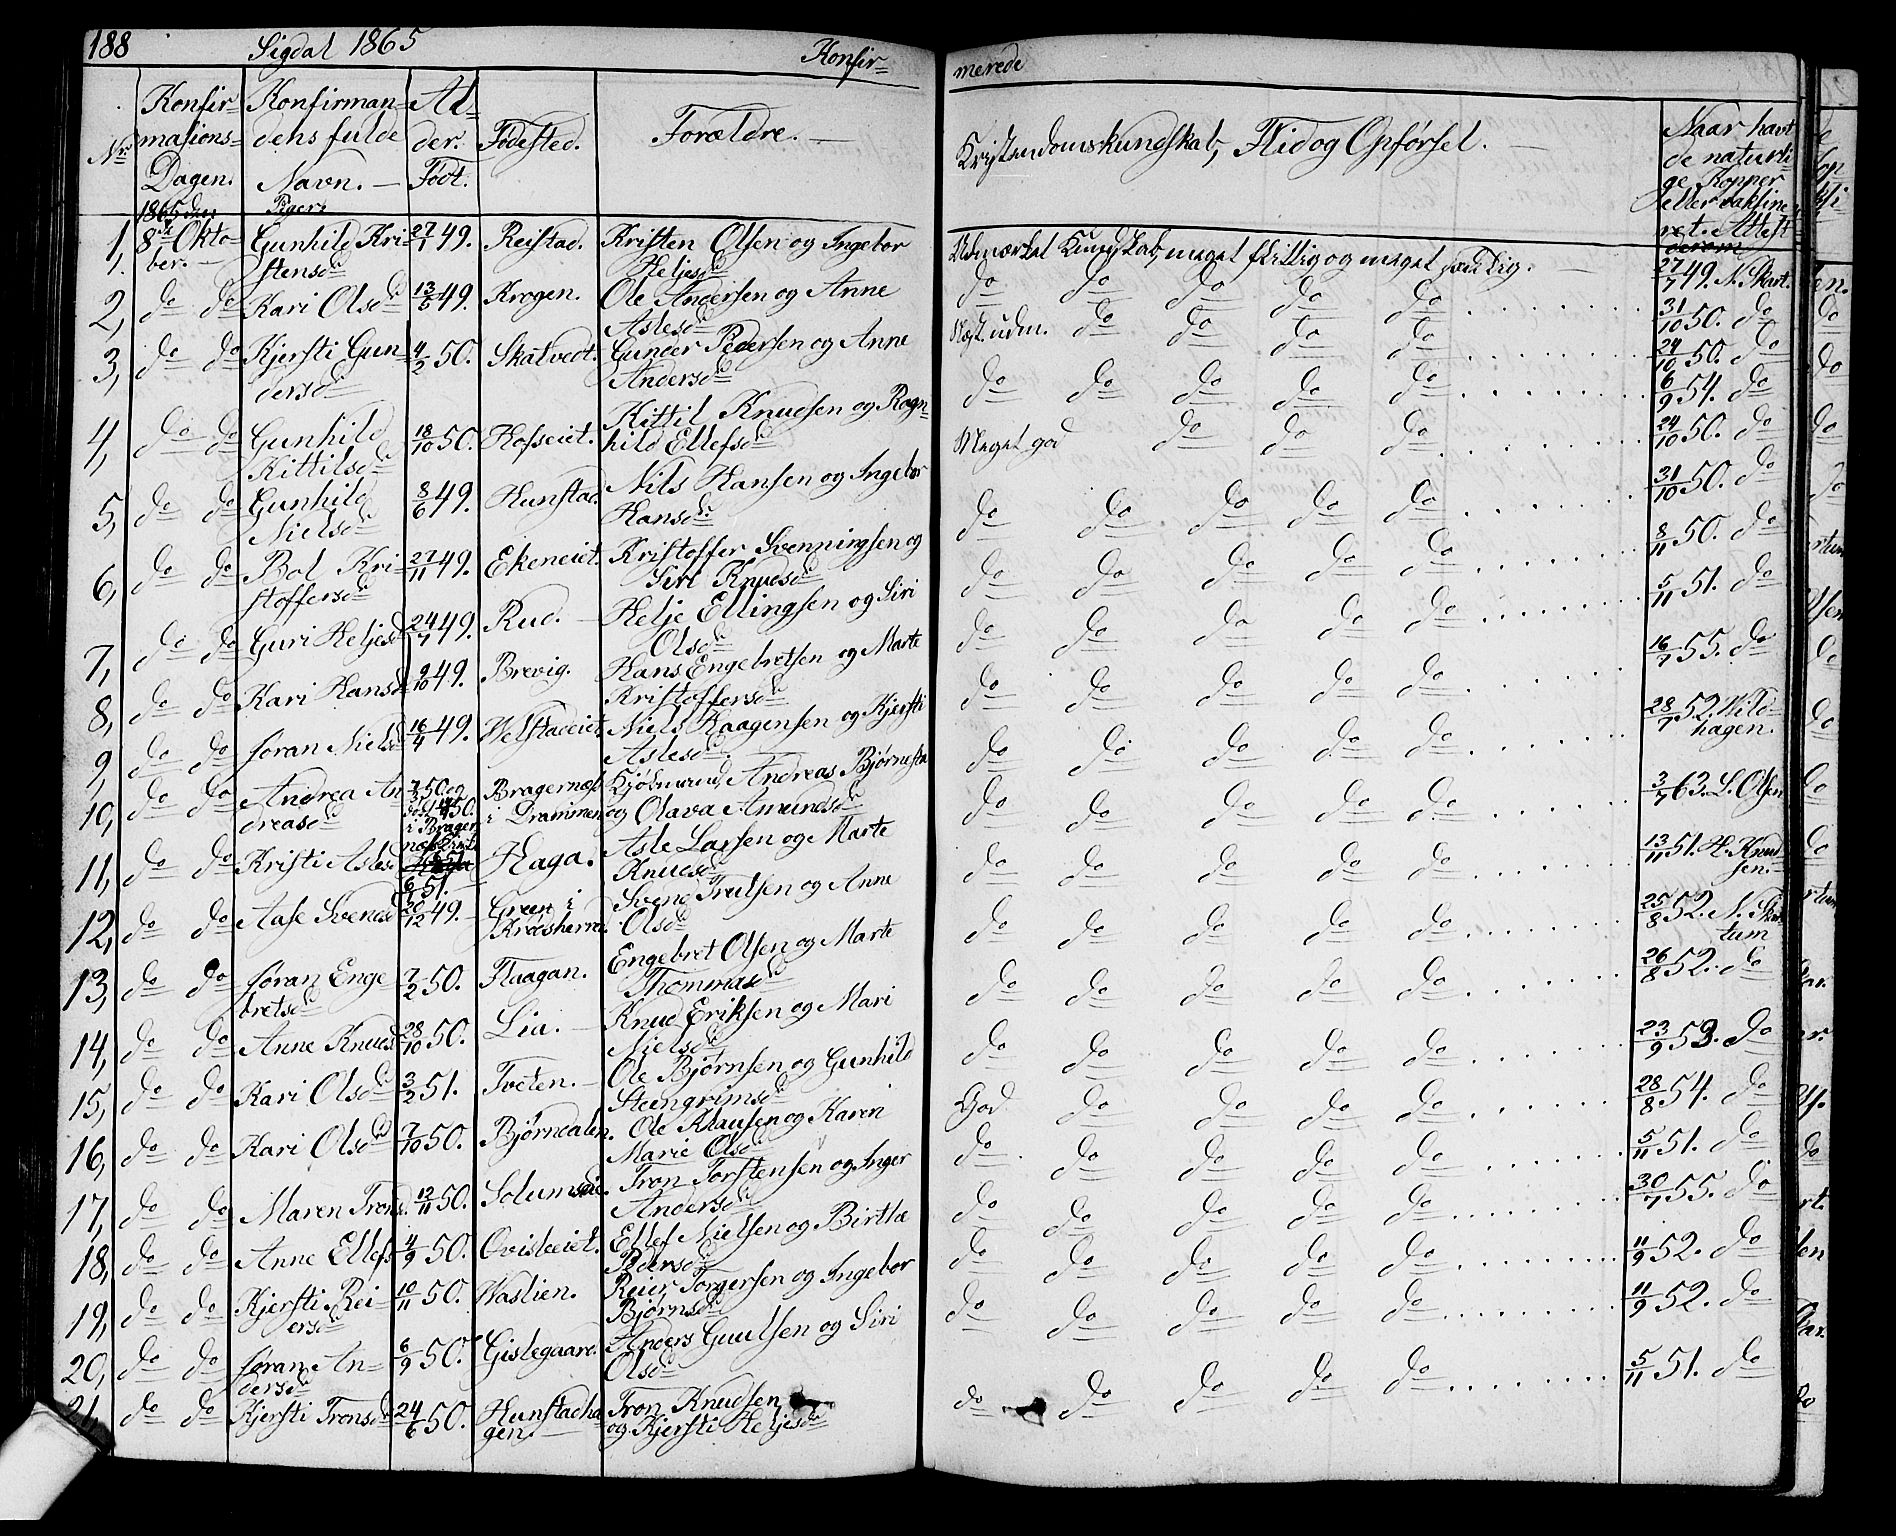 188 Sigdal 1865 Konfir-
merede
Nr.
Konfir-
masions-
Dagen.
1865 den
Konfirman-
dens fulde
Navn. —
Piger:
Al-
der.
Født.
Fødested.
Forældre. —
Kristendomskundskab, Flid og Opførsel. —
Naar havt
de naturli
ge Kopper
eller vaksine-
ret. Attest
derom
1, 8de Okto- Gunhild Kri- 27/1 49. Reistad. Kristen Olsen og Ingebor
ber. — stensd. Heljesd.
Udmærket Kundskab, meget flittig og meget sædelig. — 27/7 49. N. Skart.
2, do do Kari Olsd. 13/5 49. Krogen. Ole Andersen og Anne
Aslesd.
do do do do do 31/10 50. do
3, do do Kjersti Gun- 4/2 50. Skatvedt. Gunder Pedersen og Anne
dersd. Andersd.
Næst. udm. do do do do 24/10 50. do
4, do do Gunhild 18/10 50. Hofseiet. Kittil Knudsen og Ragn-
Kittilsd. hild Ellefsd.
do do do do do 6/9 54. do
5, do do Gunhild 8/6 49. Hunstad. Nils Hansen og Ingebor
Nielsd. Hansd.
Meget god do do do 24/10 50. do
6, do do Bol Kri- 27/11 49. Ekeneiet. Kristoffer Svenningsen og
stoffersd. Siri Knudsd.
do do do do do 31/10 50. do
7, do do Guri Heljesd. 24/7 49. Rud. — Helje Ellingsen og Siri
Olsd.
do do do do do 8/11 50. do
8, do do Kari Hansd. 9/10 49. Brevig. Hans Engebretsen og Marte
Kristoffersd.
do do do do do 5/11 51. do
9, do do Søran Nielsd. 16/4 49. Velstadeiet. Niels Haagensen og Kjersti
Aslesd.
do do do do do 16/7 55. do
10, do do Andrea An Bragernæs Andreas Bjørnesta
dreasd. i Drammen og Olava Amundsd.
do do do do do 28/7 52. Wild-
hagen.
11, do do Kristi Aslesd. 6/1 51. Haga. Asle Larsen og Marte
Knudsd.
do do do do do 3/7 63. L. Olsen
12, do do Aase Svensd. 20/12 49. Green i Svend Trulsen og Anne
Krødsherred Olsd.
do do do do do 13/11 51. H. Knud-
sen.
13, do do Søran Enge 7/2 50. Flaagan. Engebret Olsen og Marte
bretsd. Thommasd.
do do do do do 25/8 52. N. Skar-
tum
14, do do Anne Knudsd. 28/10 50. Lia. — Knud Eriksen og Mari
Nielsd.
do do do do do 26/8 52. do
15, do do Kari Olsd. 3/2 51. Tveten. — Ole Bjørnsen og Gunhild
Steengrimsd.
do do do do do 23/9 53. do
16, do do Kari Olsd. 7/10 50. Bjørnedalen. Ole Klausen og Karen
Marie Olsd.
God do do do do 28/8 54. do
17, do do Maren Tronsd. 12/11 50. Solumseie. Tron Torstensen og Inger
Andersd.
do do do do do 5/11 51. do
18, do do Anne Ellefsd 4/9 50. Ovisleeiet. Ellef Nielsen og Birthe
Pedersd.
do do do do do 30/7 55. do
19, do do Kjersti Rei- 10/11 50. Vaslien. Reier Torgersen og Ingebor
ersd. Bjørnsd.
do do do do do 11/9 52. do
20, do do Søran An- 6/9 50. Gislegaard. Anders Guulsen og Siri
dersd. Olsd.
do do do do do 11/9 52. do
21, do do Kjersti Tronsd. 24/6 50. Hunstadha- Tron Knudsen
gen. og Kjersti Heljesd.
do do do do do 5/11 51. do